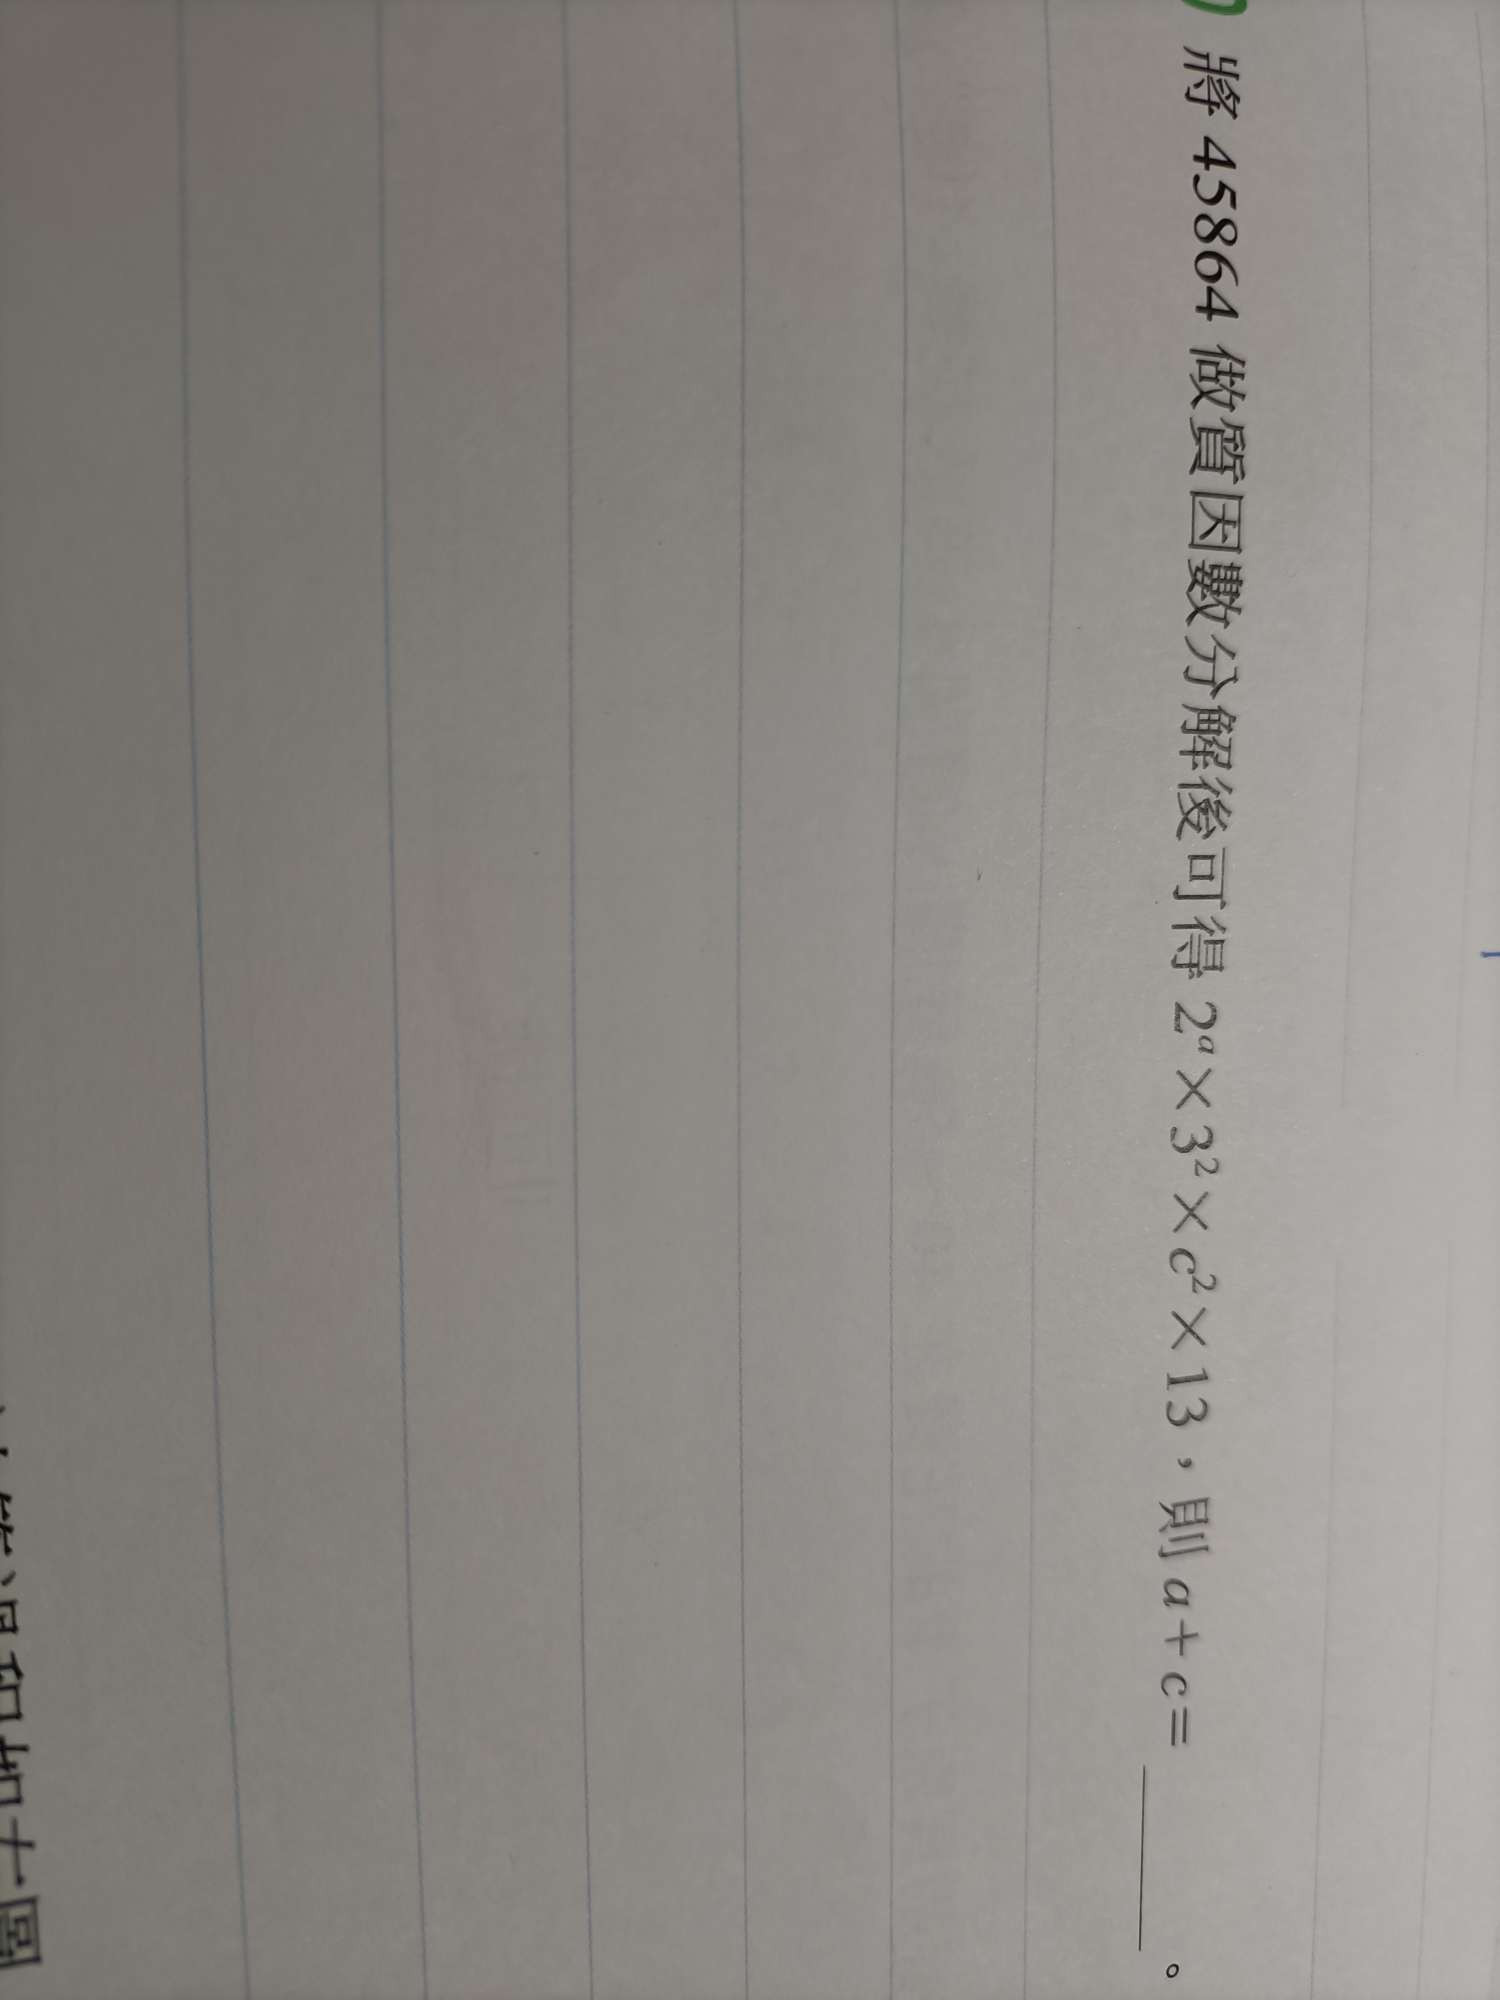 將 45864 做質因數分解後可得 2ᵃ×3²×c²×13,則 a+c=＿＿＿。